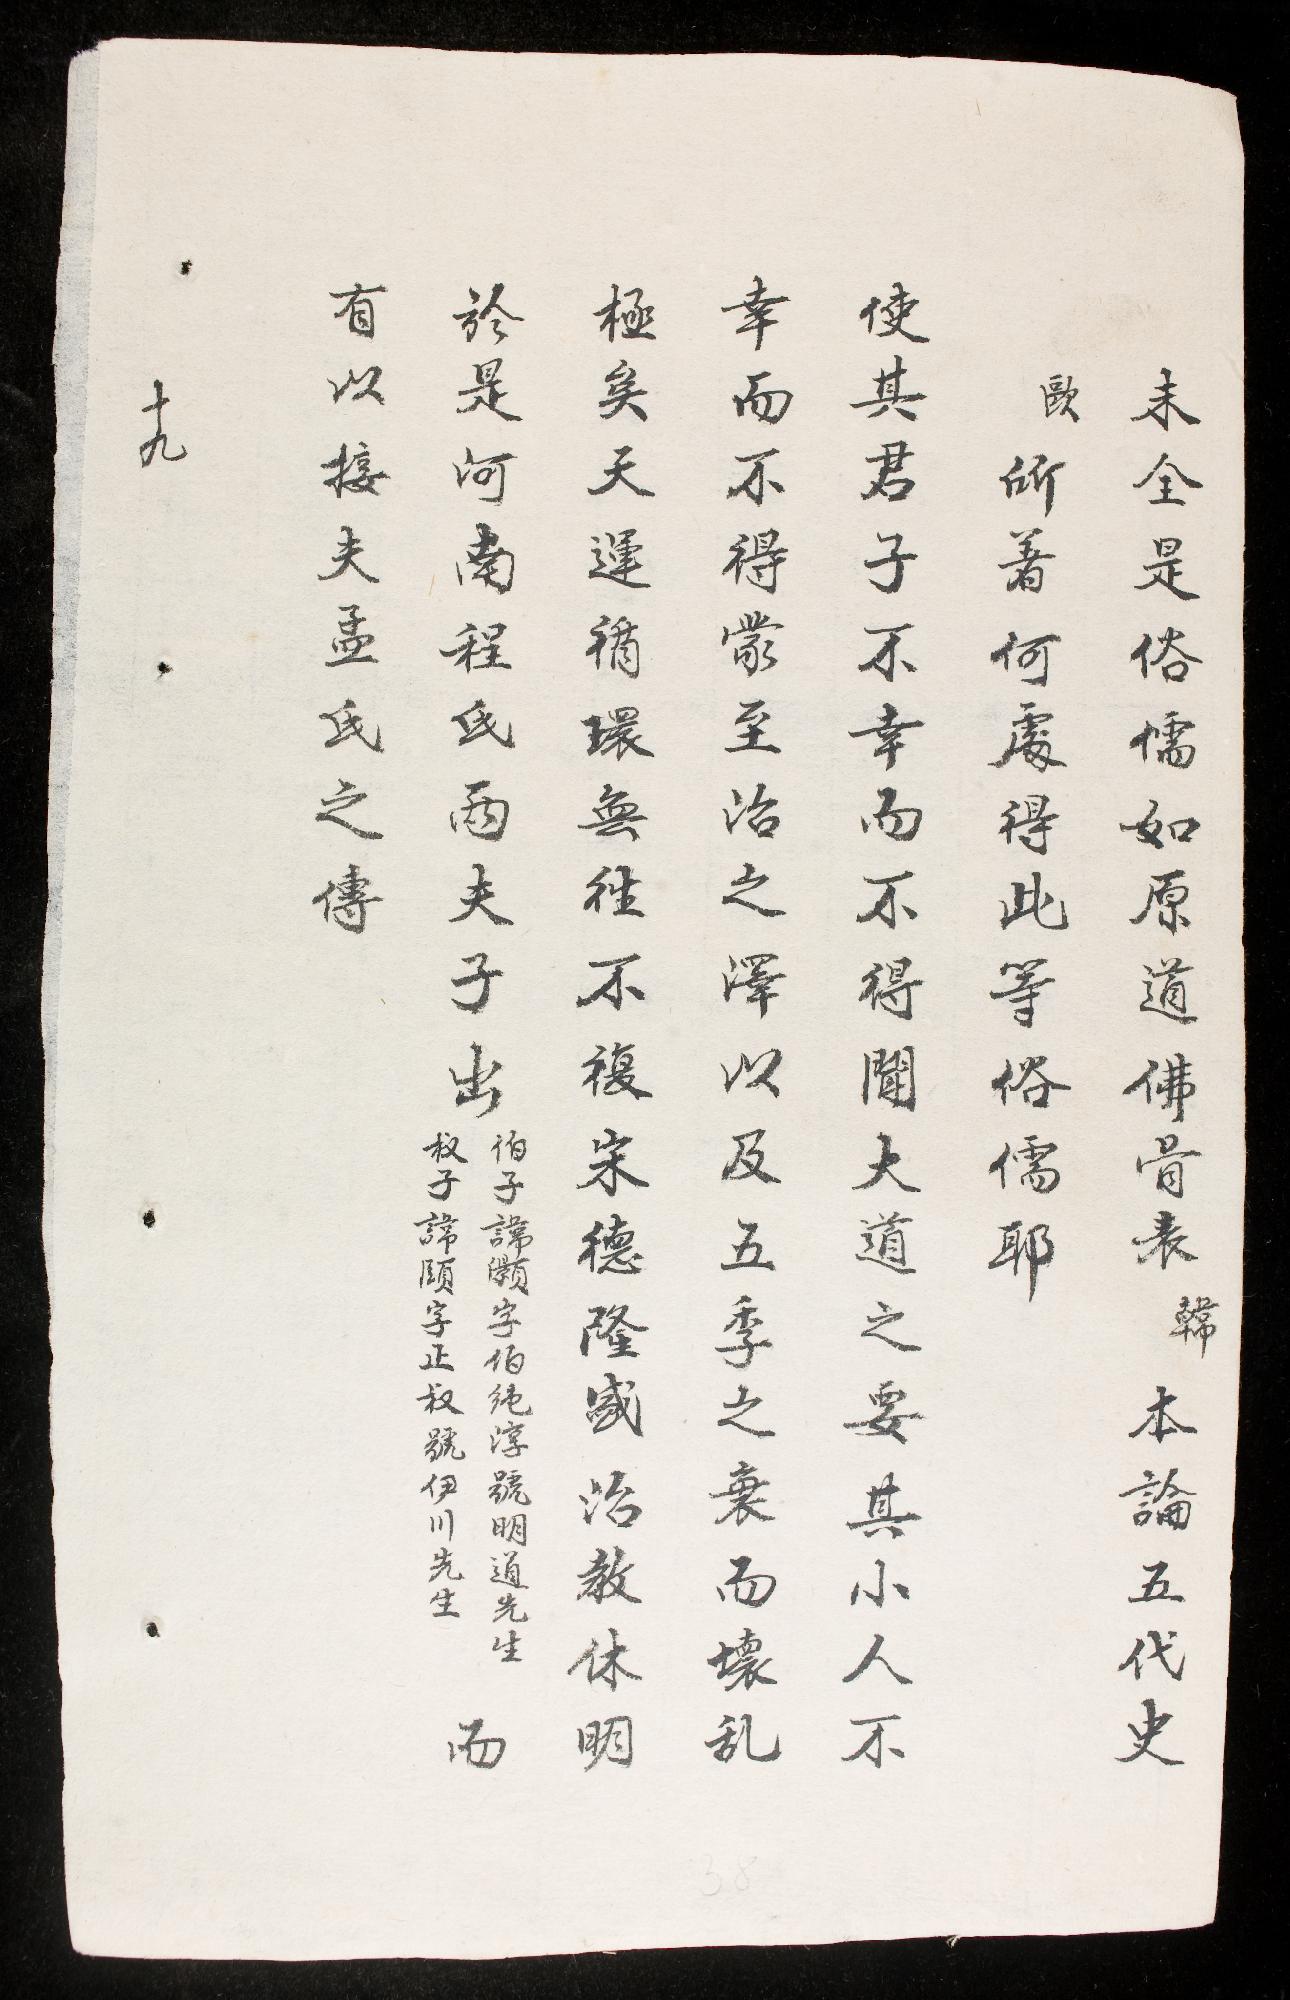 未全是俗儒如原道佛骨表韓本論五代史
歐所著何處得此等俗儒耶
使其君子不幸而不得聞大道之要其小人不
幸而不得蒙至治之澤以及五季之衰而壞乱
極矣天運循環無往不復宋德隆盛治教休明
於是河南程氏兩夫子出
伯子諱顥字伯純淳號明道先生
叔子諱頤字正叔號伊川先生
而
有以接夫孟氏之傳
十九
38